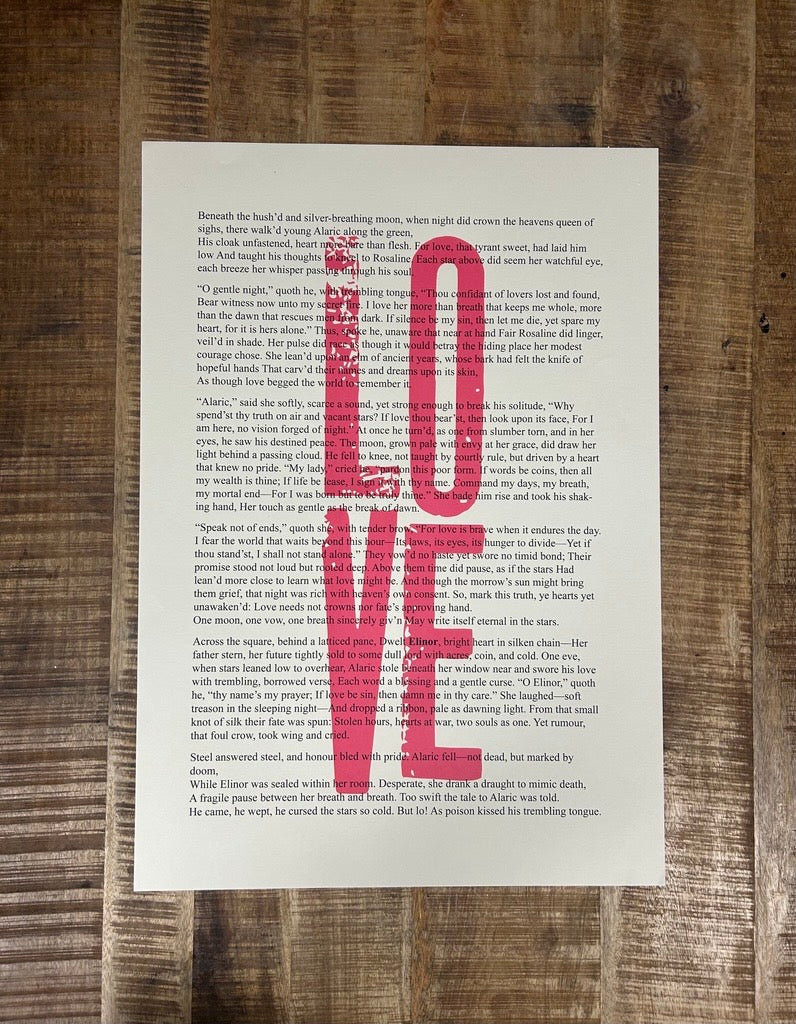 Beneath the hush'd and silver-breathing moon, when night did crown the heavens queen of
sighs, there walk'd young Alaric along the green,
His cloak unfastened, heart more bare than flesh. For love, that tyrant sweet, had laid him
low And taught his thoughts to kneel to Rosaline. Each star above did seem her watchful eye,
each breeze her whisper passing through his soul.
“O gentle night,” quoth he, with trembling tongue, “Thou confidant of lovers lost and found,
Bear witness now unto my secret fire. I love her more than breath that keeps me whole, more
than the dawn that rescues men from dark. If silence be my sin, then let me die, yet spare my
heart, for it is hers alone.” Thus, spoke he, unaware that near at hand Fair Rosaline did linger,
veil'd in shade. Her pulse did race as though it would betray the hiding place her modest
courage chose. She lean'd upon an elm of ancient years, whose bark had felt the knife of
hopeful hands That carv'd their names and dreams upon its skin,
As though love begged the world to remember it.
“Alaric,” said she softly, scarce a sound, yet strong enough to break his solitude, “Why
spend'st thy truth on air and vacant stars? If love thou bear'st, then look upon its face, For I
am here, no vision forged of night.” At once he turn'd, as one from slumber torn, and in her
eyes, he saw his destined peace. The moon, grown pale with envy at her grace, did draw her
light behind a passing cloud. He fell to knee, not taught by courtly rule, but driven by a heart
that knew no pride. “My lady,” cried he, “pardon this poor form. If words be coins, then all
my wealth is thine; If life be lease, I sign it in thy name. Command my days, my breath,
my mortal end—For I was born but to be truly thine.” She bade him rise and took his shak-
ing hand, Her touch as gentle as the break of dawn.
“Speak not of ends,” quoth she, with tender brow, “For love is brave when it endures the day.
I fear the world that waits beyond this hour—Its laws, its eyes, its hunger to divide—Yet if
thou stand'st, I shall not stand alone.” They vow'd no haste yet swore no timid bond; Their
promise stood not loud but rooted deep. Above them time did pause, as if the stars Had
lean'd more close to learn what love might be. And though the morrow's sun might bring
them grief, that night was rich with heaven's own consent. So, mark this truth, ye hearts yet
unawaken'd: Love needs not crowns nor fate's approving hand.
One moon, one vow, one breath sincerely giv'n May write itself eternal in the stars.
Across the square, behind a latticed pane, Dwelt Elinor, bright heart in silken chain—Her
father stern, her future tightly sold to some dull lord with acres, coin, and cold. One eve,
when stars leaned low to overhear, Alaric stole beneath her window near and swore his love
with trembling, borrowed verse, Each word a blessing and a gentle curse. “O Elinor,” quoth
he, “thy name's my prayer; If love be sin, then damn me in thy care.” She laughed—soft
treason in the sleeping night—And dropped a ribbon, pale as dawning light. From that small
knot of silk their fate was spun: Stolen hours, hearts at war, two souls as one. Yet rumour,
that foul crow, took wing and cried.
Steel answered steel, and honour bled with pride. Alaric fell—not dead, but marked by
doom,
While Elinor was sealed within her room. Desperate, she drank a draught to mimic death,
A fragile pause between her breath and breath. Too swift the tale to Alaric was told.
He came, he wept, he cursed the stars so cold. But lo! As poison kissed his trembling tongue.
LO
VE